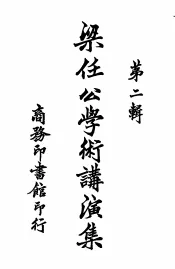 第二輯
梁任公學術講演集
商務印書館印行